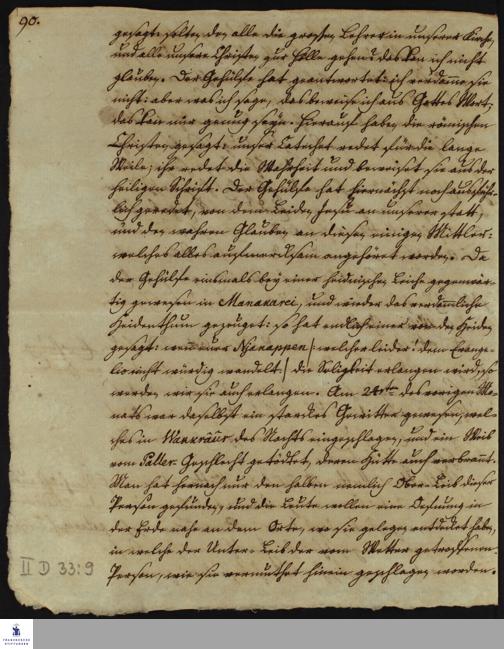 90.
gesagt: solten den alle die grossen Lehrer in unserer Kirche,
und alle unsere Christen zur Hölle gehen? das kan ich nicht
glauben. Der Gehülfe hat geantwortet: ich verdamme sie
nicht: aber was ich sage, das beweise ich aus Gottes Wort,
das kan nur genug seyn. Hierauf haben die römischen
Christen gesagt: unser Catechet redet für die lange
Weile; ihr redet die Wahrheit und beweiset sie aus der
heiligen Schrift. Der Gehülfe hat hiernächst noch ausführ-
lich geredet, von dem Leiden Jesu an unserer statt,
und den wahren Glauben an diesen einigen Mittler:
welches alles aufmercksam angehöret worden. Da
der Gehülfe einsmals bey einer heidnischen Leiche gegenwär-
tig gewesen in Manaxarei, und wieder das verdammliche
Heidenthum gezeuget: so hat endlich einer von den Heiden
gesagt: wenn euer Njanappen (: welcher leider! dem Evange-
lio nicht würdig wandelt :) die Seligkeit erlangen wird, so
werden wir sie auch erlangen. Am 24ten des vorigen Mo-
nats war daselbst ein starckes Gewitter gewesen, wel-
ches in des Nachts eingeschlagen, und ein Weib
vom Paller-Geschlecht getödtet, deren Hütte auch verbrannt.
Man hat hernach nur den halben nemlich Ober-Leib dieser
Person gefunden, und die Leute wollen eine Oefnung in
der Erde nahe an dem Orte, wo sie gelegen entdecket haben,
in welche der Unter-Leib der vom Wetter getroffenen
Person, wie sie vermuthet hinein geschlagen worden.
II D 33:9
FRANCKESCHE
STIFTUNGEN